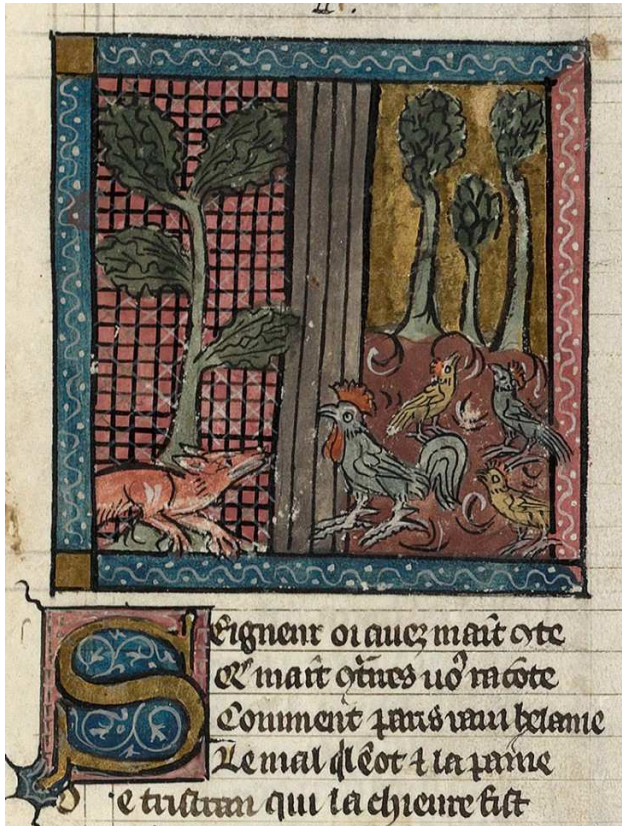 .II.
Seigneur oi auez maīt ꝯte
Qe maīt ꝯtres uoꝰ racōte
Comment paris raui helaine
Le mal qͥl ēot ⁊ la paine
De tristran qui la chieure fist